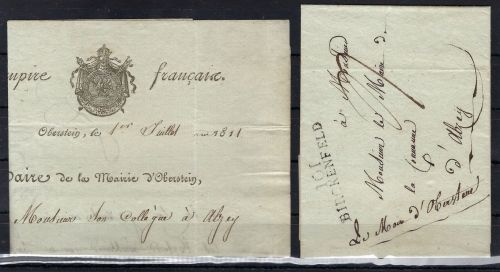 mpire française.
Oberstein, le 1er Juillet 1811
Maire de la Mairie d'Oberstein,
Monsieur son Collègue à Alzey
à Monsieur
Monsieur le Maire de
la Commune
d'Alzey
Le Maire d'Oberstein
101
BIRKENFELD